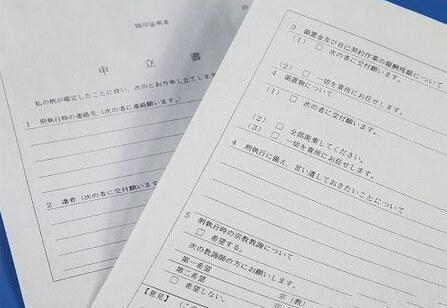 指印証明者
申立書
私の刑が確定したことに伴い、次のとおり申し立てします
1 刑執行時の連絡先(次の者に連絡願います。)
2 遺骨(次の者に交付願います
3 領置金及び自己契約作業の報酬残額について
(1) □ 次の者に交付願います。
(2) □ 一切を貴所にお任せします。
4 領置物について
(1) □ 次の者に交付願います。
(2) □ 全部廃棄してください。
(3) □ 一切を貴所にお任せします。
4 刑執行に備え、言い遺しておきたいことについて
5 刑執行時の宗教教誨について
□ 希望する。
次の教誨師の方にお願いします。
第一希望
第二希望
宗(教)
□ 希望しない。
宗(
【意見】(この